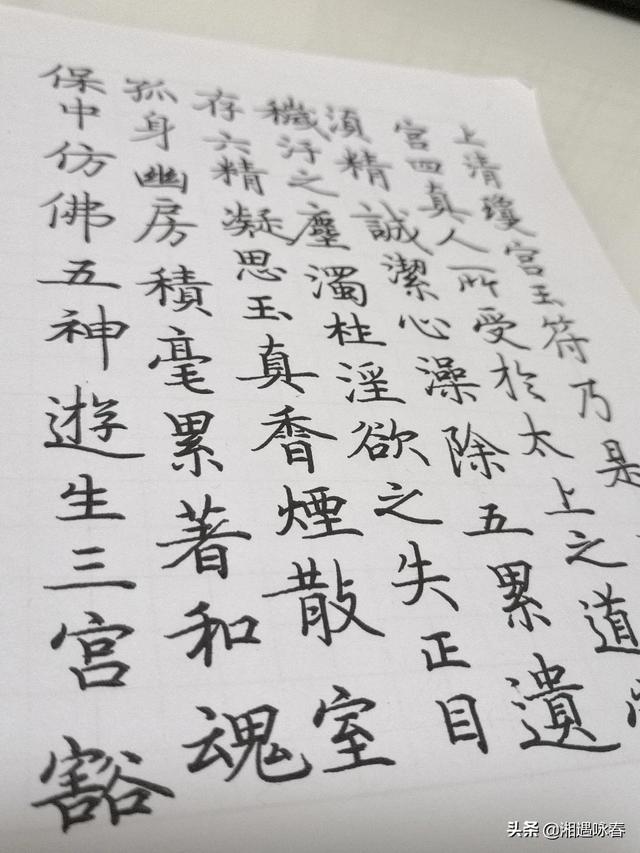 上清瓊宮玉符乃是
官四真人所受於太上之道
須精誠潔心澡除五累遺
穢汙之塵濁柱淫欲之失正目
存六精凝思玉真香煙散室
孤身幽房積毫累著和魂
保中仿佛五神遊生三宮豁
头条 @湘遇咏春